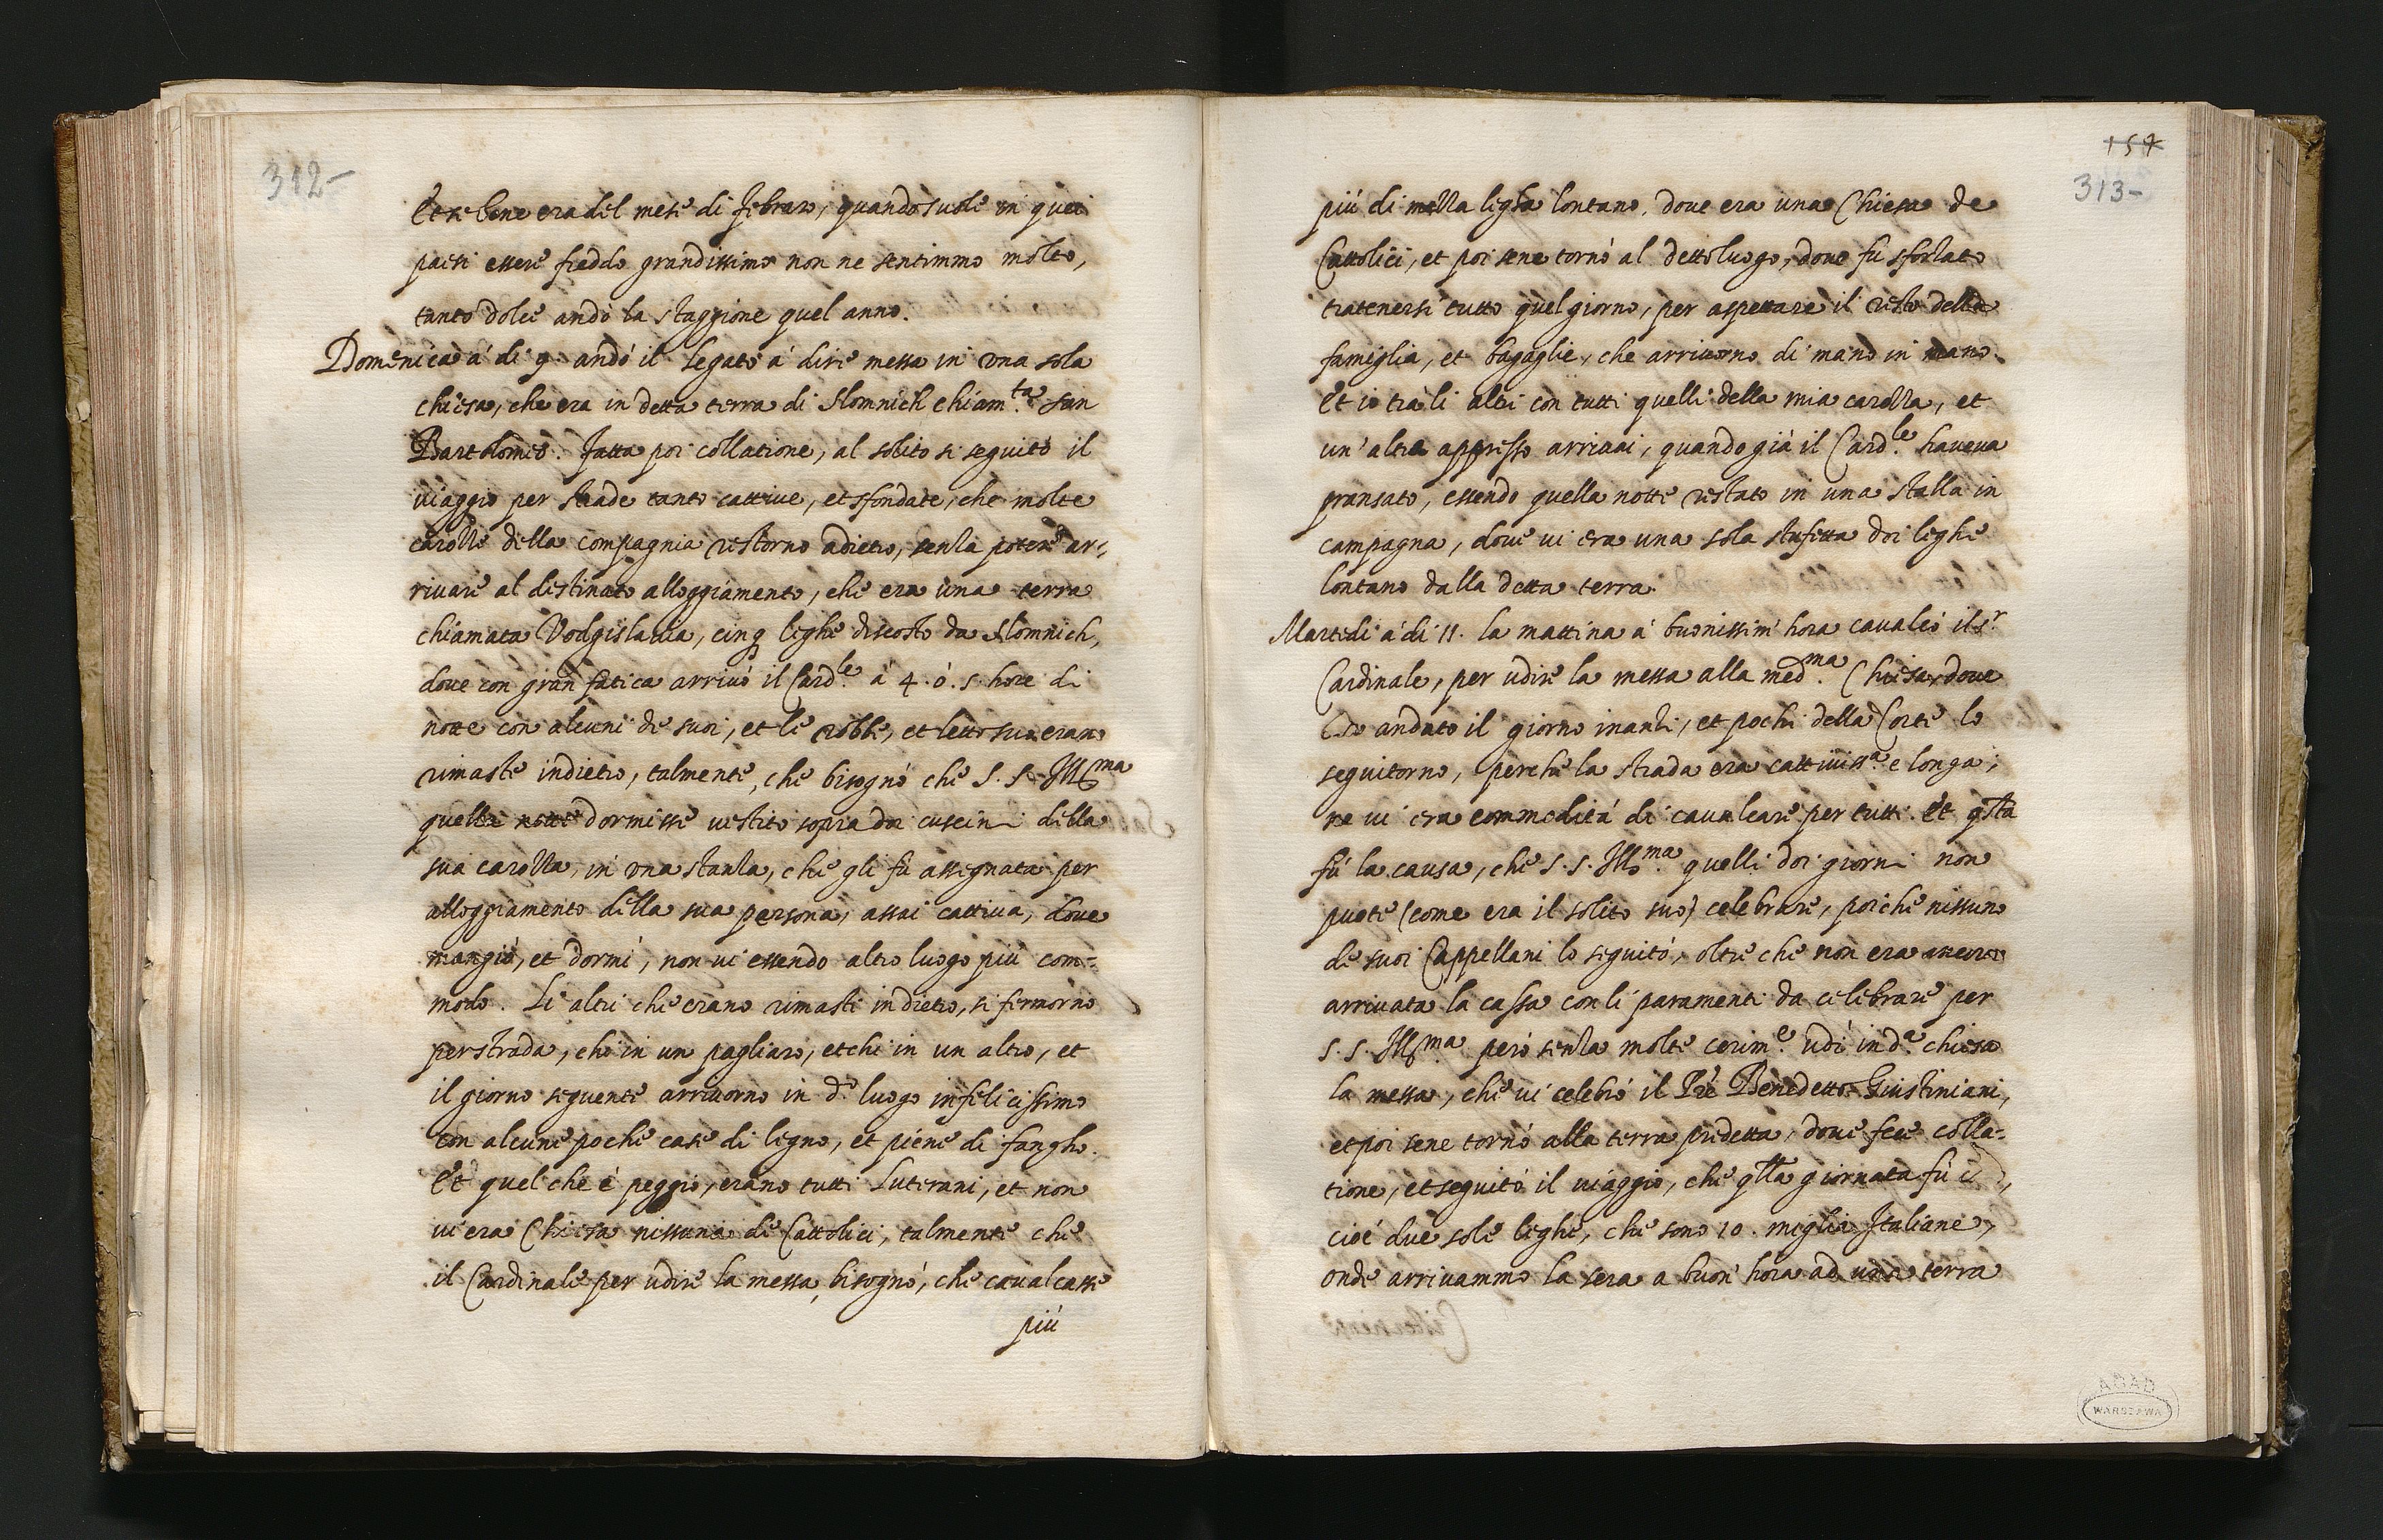 312-
Et se bene era del mese di Febraro, quando suole in quei
paesi essere freddo grandissimo non ne sentimmo molto,
tanto dolce andò la staggione quel anno.
Domenica á di 9 andó il legato á dire messa in una sola
chiesa, che era in detta terra di Slomnich chiam.ta san
Bartolomeo. Fatta poi collatione, al solito si seguitò il
viaggio per strade tanto cattive, et sfondate, che molte
carozze della compagnia restorno adietro, senza poter ar-
rivare al destinato alloggiamento, che era una terra
chiamata Vodgislavia, cinq leghe discosto da Slomnich,
dove con gran fatica arrivò il Card.le á 4. ó. 5. hore di
notte con alcuni de suoi, et le robbe, et letto suo erano
rimaste indietro, talmente, che bisognó che S. S. Ill.ma
quella notte dormisse vestito sopra doi cuscini della
sua carozza, in una stanza, che gli fù assegnata per
alloggiamento della sua persona, assai cattiva, dove
mangió, et dormì, non vi essendo altro luogo più com-
modo. Li altri che erano rimasti indietro, si fermorno
per strada, chi in un pagliaro, et chi in un altro, et
il giorno seguente arrivorno in d.o luogo infelicissimo
con alcune poche case di legno, et piene di fangho.
Et quel che è peggio, erano tutti Luterani, et non
vi era Chiesa nissuna de Cattolici, talmente che
il Cardinale per udire la messa, bisognó, che cavalcasse
più
157
313-
piú di mezza legha lontano, dove era una Chiesa de
Cattolici, et poi sene tornò al detto luogo, dove fu sforzato
tratenersi tutto quel giorno, per aspettare il resto della
famiglia, et bagaglie, che arrivorno di mano in mano.
Et io trà li altri con tutti quelli della mia carozza, et
un'altra appresso arrivai, quando già il Card.le haveva
pransato, essendo quella notte restato in una stalla in
campagna, dove vi era una sola stufetta doi leghe
lontano dalla detta terra.
Martedi á di 11. la mattina á buonissim' hora cavalcó il S.r
Cardinale, per udire la messa alla med.ma Chiesa, dove
era andato il giorno inanzi, et pochi della Corte lo
seguitorno, perche la strada era cattiviss.a e longa,
ne vi era commodità di cavalcare per tutti. Et q.sta
fú la causa, che S. S. Ill.ma quelli doi giorni non
puote (come era il solito suo) celebrare, poiche nissuno
de suoi Cappellani lo seguitó, oltre che non era ancora
arrivata la cassa con li paramenti da celebrare per
S. S. Ill.ma però senza molte cerim.e udì in d.a chiesa
la messa, che vi celebró il Prē Benedetto Giustiniani,
et poi sene tornó alla terra predetta, dove fece colla-
tione, et seguitó il viaggio, che q.lla giornata fù
cioé due sole leghe, che sono 10. miglia Italiane,
onde arrivammo la sera a buon' hora ad una terra
AGAD
WARSZAWA